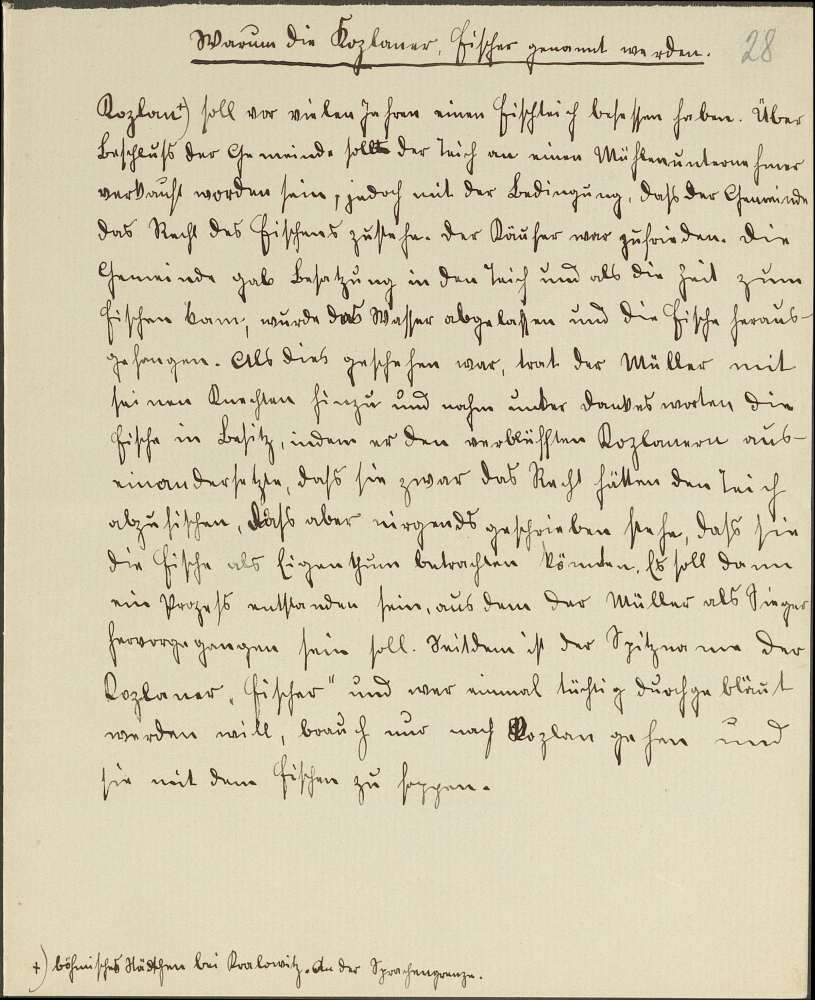 Warum die Kozlaner, Fischer genannt werden. 28
Kozlan +) soll vor vielen Jahren einen Fischteich besessen haben. Über
Beschluß der Gemeinde sollte der Teich an einen Mühlenunternehmer
verkauft worden sein, jedoch mit der Bedingung, daß der Gemeinde
das Recht des Fischens zustehe. Der Käufer war zufrieden. Die
Gemeinde gab Besatzung in den Teich und als die Zeit zum
Fischen kam, wurde das Wasser abgelassen und die Fische heraus-
gefangen. Als dies geschehen war, trat der Müller mit
seinen Knechten hinzu und nahm unter Dankesworten die
Fische in Besitz, indem er den verblüfften Kozlanern aus-
einandersetzte, daß sie zwar das Recht hätten den Teich
abzufischen, daß aber nirgends geschrieben stehe, daß sie
die Fische als Eigenthum betrachten könnten. Es soll dann
ein Prozeß entstanden sein, aus dem der Müller als Sieger
hervorgegangen sein soll. Seitdem ist der Spitzname der
Kozlaner „Fischer" und wer einmal tüchtig durchgebläut
werden will, brauch nur nach Kozlan gehen und
sie mit dem Fischen zu foppen.
+) böhmisches Städtchen bei Kralowitz. An der Sprachengrenze.